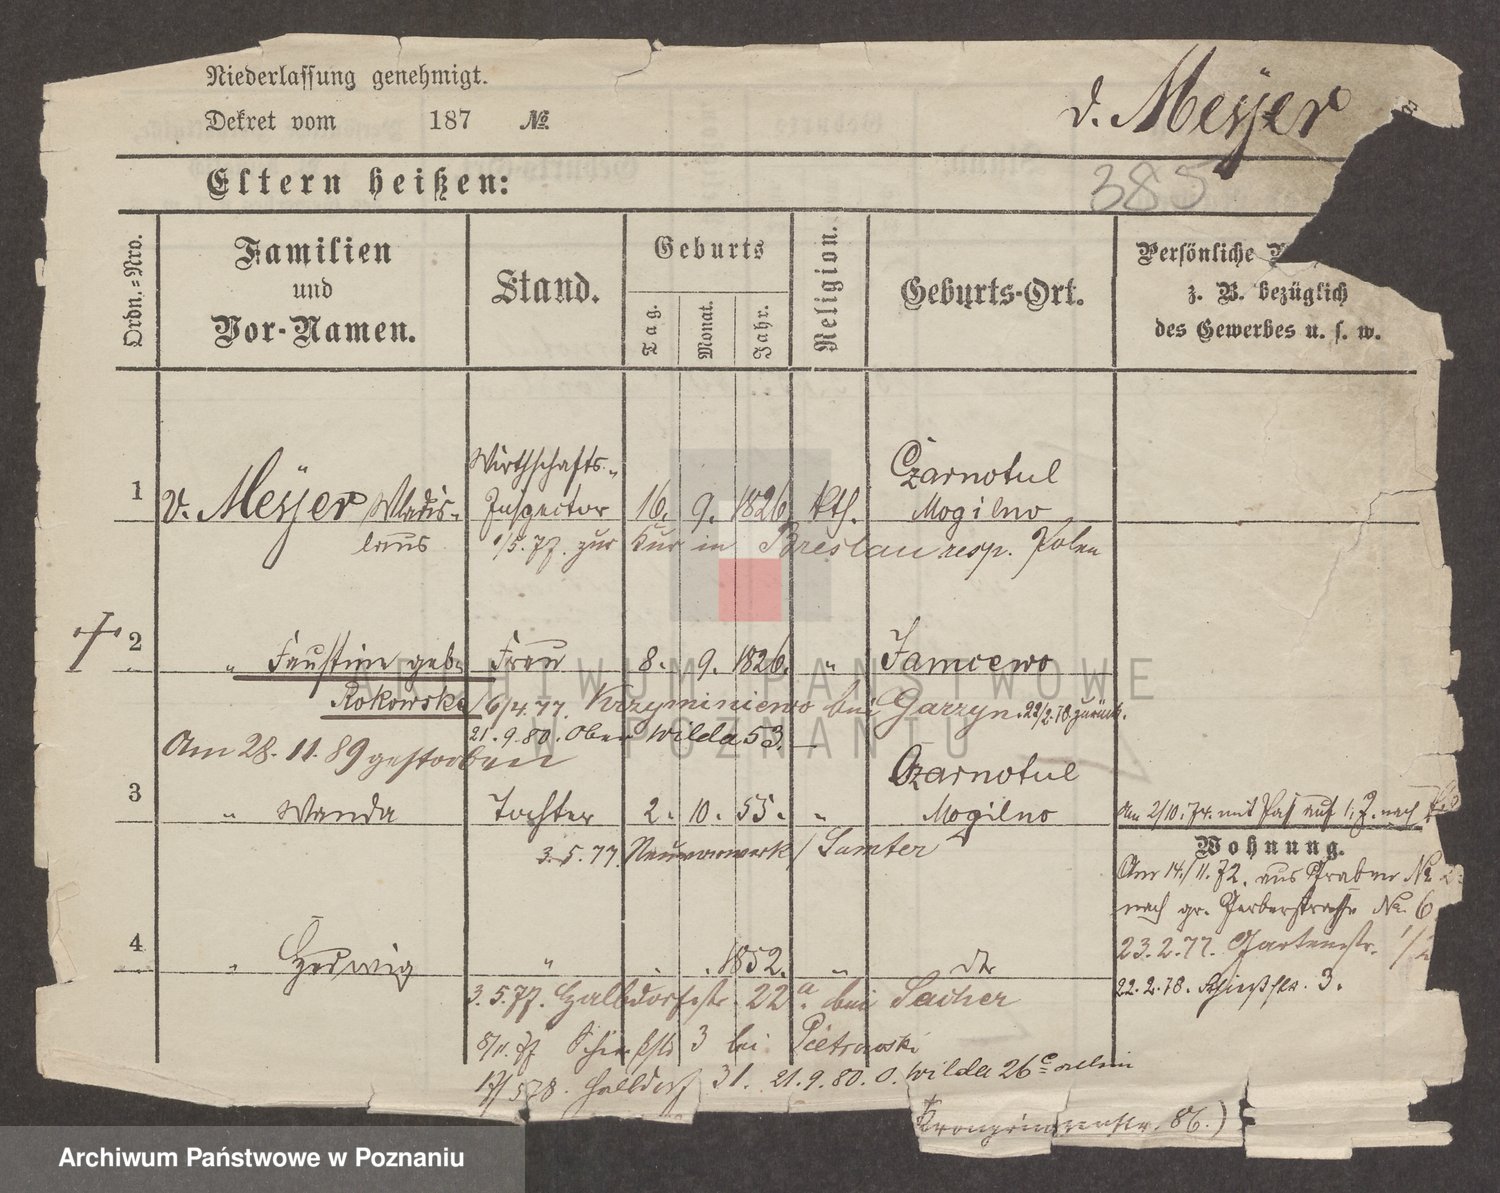 Niederlassung genehmigt.
Dekret vom 187 №
v. Meyer
385
Eltern heißen:
Ordn.-Nro.
Familien
und
Vor-Namen.
Stand.
Geburts
Tag.
Monat.
Jahr.
Religion.
Geburts-Ort.
Persönliche
z. B. bezüglich
des Gewerbes u. s. w.
1 v. Meyer Wladis-
laus
Wirthschafts-
Inspector 16. 9. 1826 kth.
Czarnotul
Mogilno
1/5. 77. zur Kur in Breslau resp. Polen
2 " Faustine geb. Frau 8. 9. 1826. " Jamcewo
Rokowska
6/4. 77. Krzyminiewo bei Garzyn. 22/2.78 zurück.
21.9.80. Ober Wilda 53.
Am 28.11.89 gestorben
3 " Wanda Tochter 2. 10. 55. "
Czarnotul
Mogilno
Am 2/10. 74. mit Paß auf 1. J. nach
3.5.77 Neuvorwerk / Samter
Wohnung.
Am 14./11. 72. aus Graben No
nach gr. Gerberstraße No. 6
23.2.77. Gartenstr. 1/2
22.2.78. Schießstr. 3.
4 " Hedwig " . . 1852. " dto
3.5.77. Halbdorfstr. 22a. bei Sacher
8/11. 77 Schießstr 3 bei Pietrowski
17/5 78. Halbdorf 31. 21.9.80. O. Wilda 26c allein
Kronprinzenstr. 86.)
ARCHIWUM PAŃSTWOWE
W POZNANIU
Archiwum Państwowe w Poznaniu